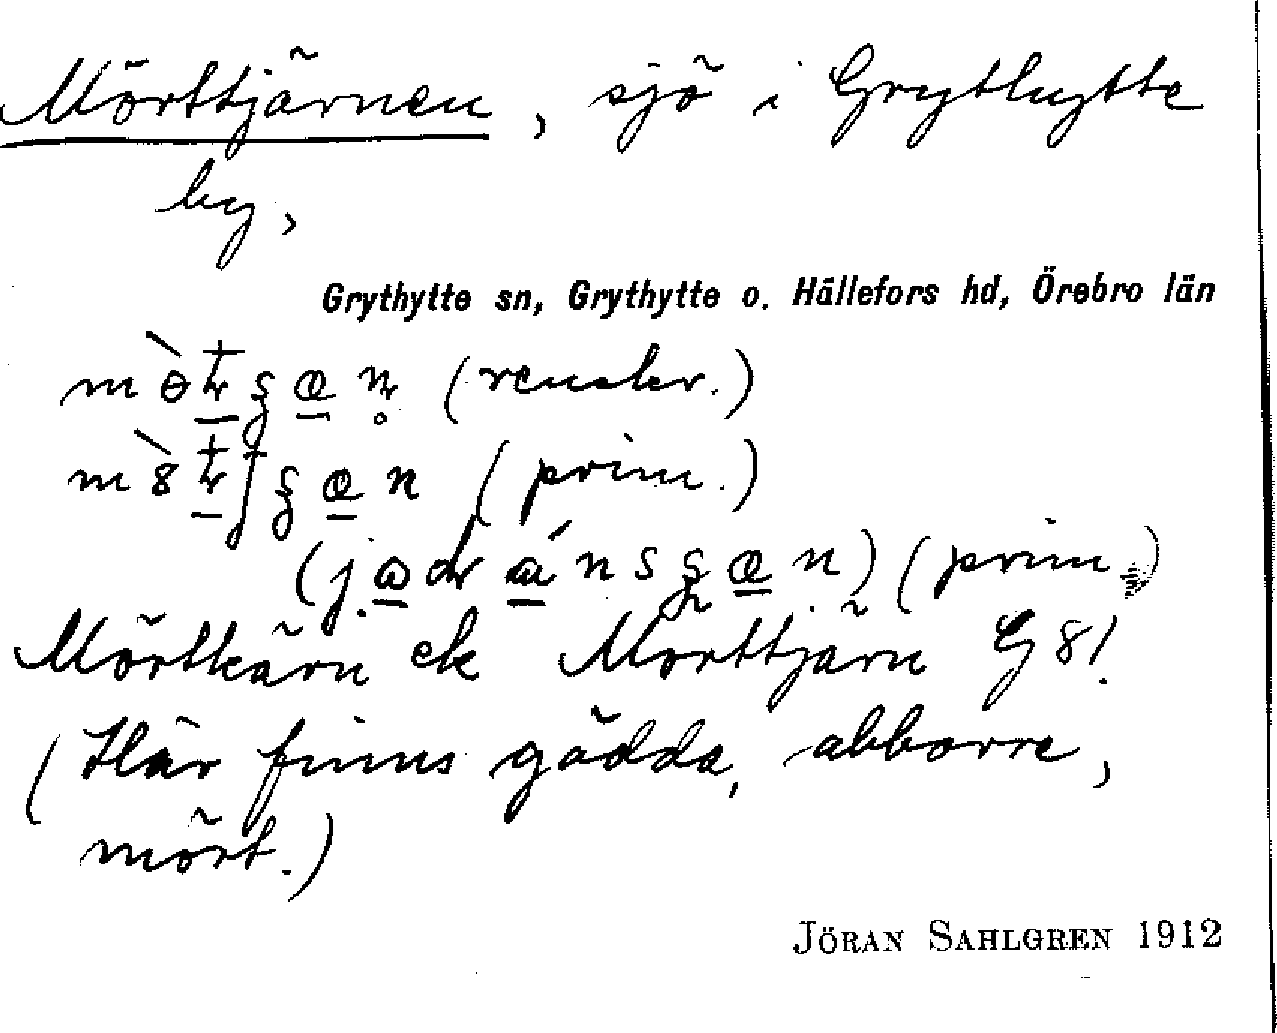 Mörttjärnen, sjö i Grythytte
by,
Grythytte sn, Grythytte o. Hällefors hd, Örebro län
(renskr.)
(prim.)
(prim.)
Mörtkärn ek Mörttjärn G 8!
(Här finns gädda, abborre,
mört.)
JÖRAN SAHLGREN 1912